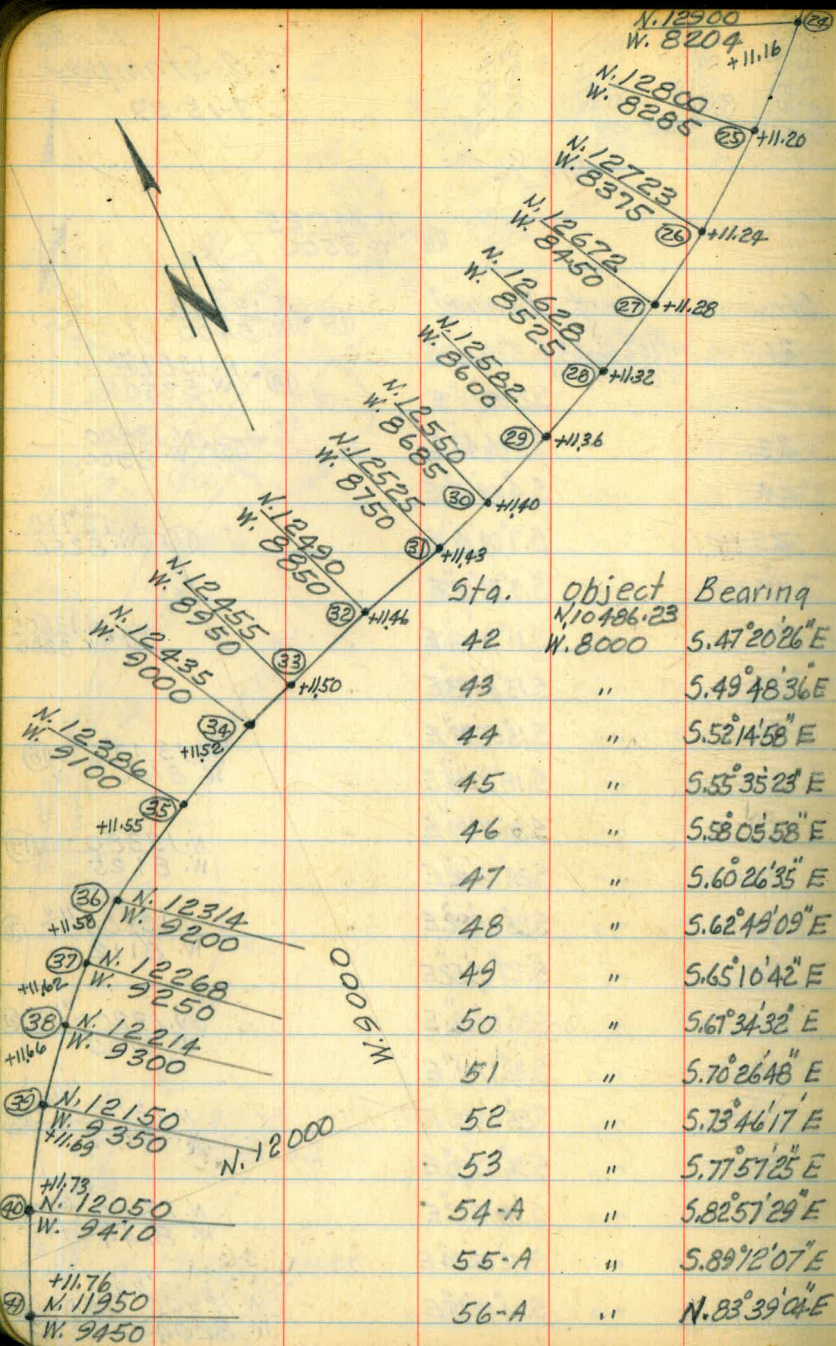 N. 12900 (24)
W. 8204
+11.16
N. 12800
W. 8285
(25) +11.20
N. 12723
W. 8375
(26) +11.24
N. 12672
W. 8450
(27) +11.28
N. 12628
W. 8525
(28) +11.32
N. 12582
W. 8600
(29) +11.36
N. 12550
W. 8685
(30) +11.40
N. 12525
W. 8750
(31) +11.43
N. 12490
W. 8850
(32) +11.46
N. 12455
W. 8950
(33) +11.50
N. 12435
W. 9000
(34)
+11.52
N. 12386
W. 9100
(35)
+11.55
(36) N. 12314
+11.58 W. 9200
(37) N. 12268
+11.62 W. 9250
(38) N. 12214
+11.66 W. 9300
(39) N. 12150
W. 9350
+11.69
+11.73
(40) N. 12050
W. 9410
+11.76
(41) N. 11950
W. 9450
N
W. 9000
N. 12000
Sta. object Bearing
N. 10486.23
42 W. 8000 S. 47° 20' 26" E
43 " S. 49° 48' 36" E
44 " S. 52° 14' 58" E
45 " S. 55° 35' 23" E
46 " S. 58° 05' 58" E
47 " S. 60° 26' 35" E
48 " S. 62° 49' 09" E
49 " S. 65° 10' 42" E
50 " S. 67° 34' 32" E
51 " S. 70° 26' 48" E
52 " S. 73° 46' 17" E
53 " S. 77° 57' 25" E
54-A " S. 82° 57' 29" E
55-A " S. 89° 12' 07" E
56-A " N. 83° 39' 04" E